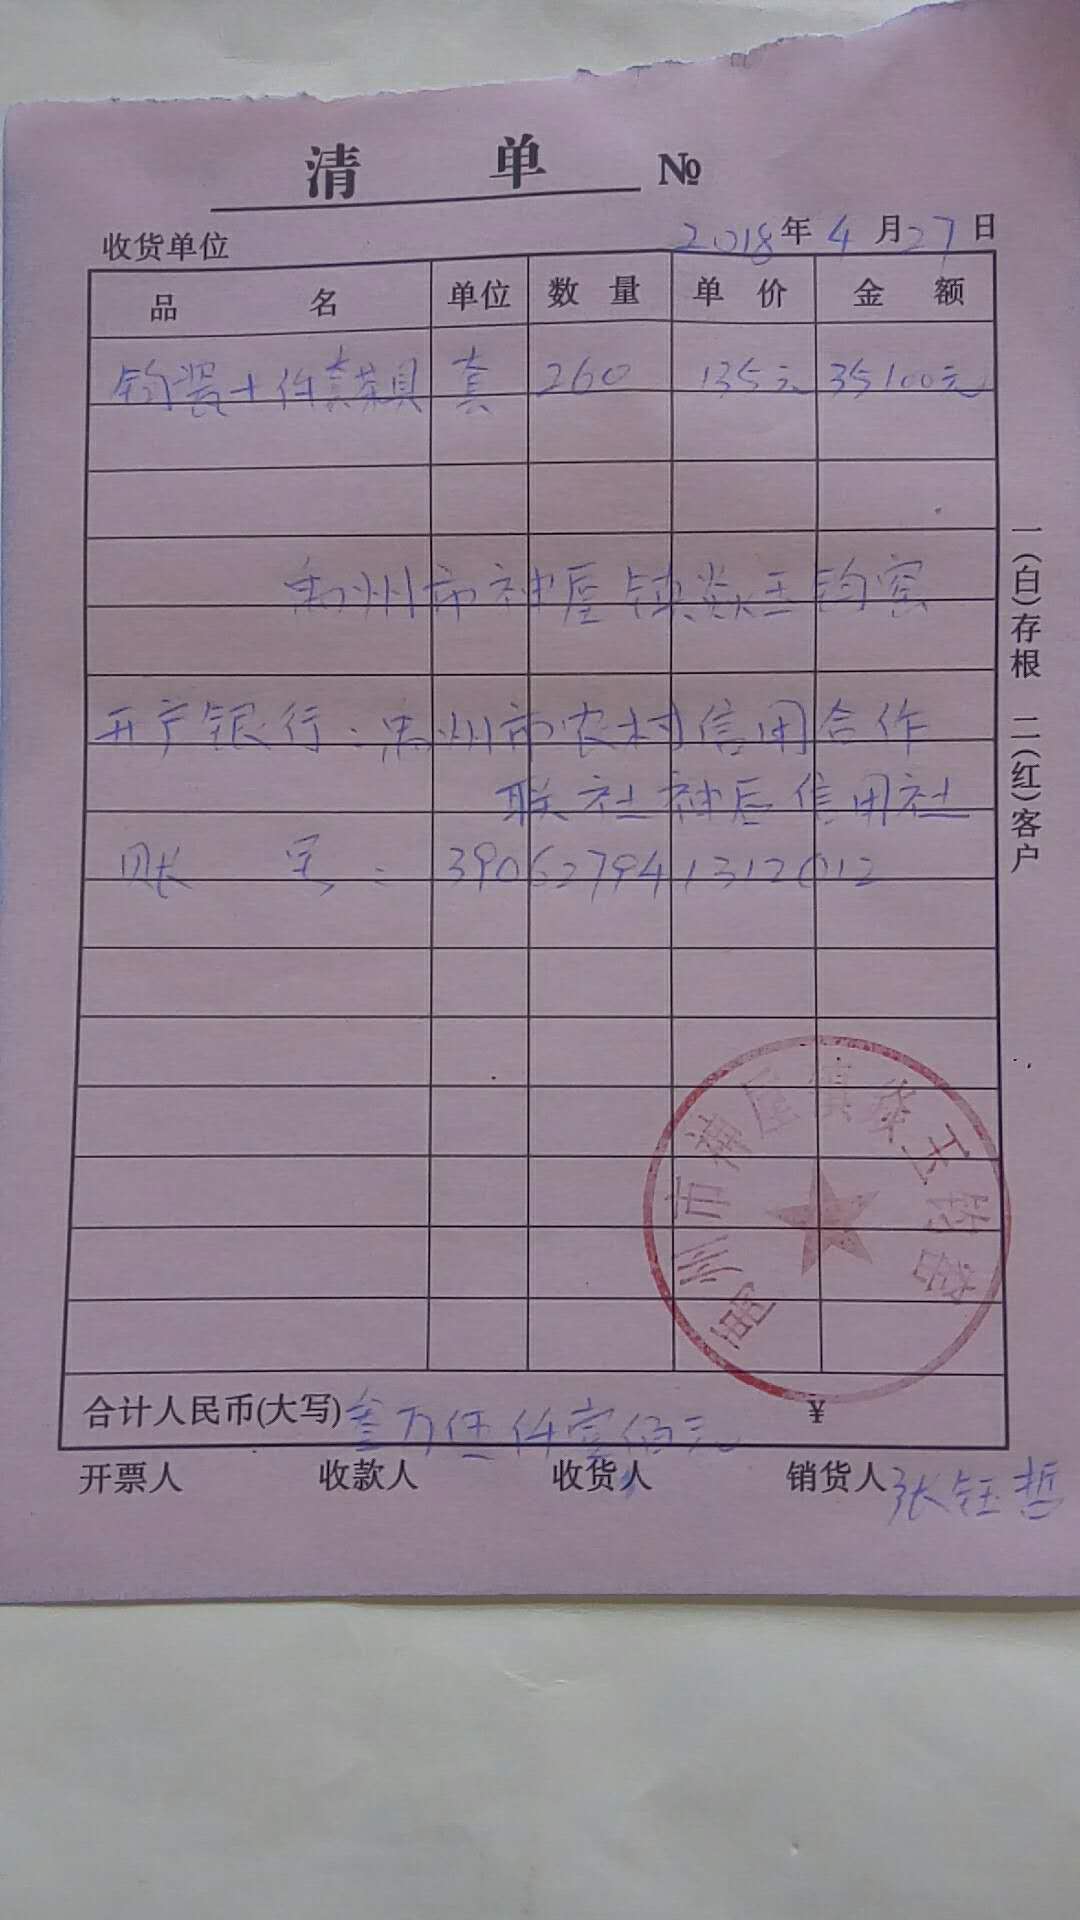 清 单 №
收货单位 2018年4月27日
品 名 单位 数 量 单 价 金 额
钧瓷十件套茶具 套 260 135元 35100元
禹州市神垕镇 王钧窑
开户银行：禹州市农村信用合作
联社神后信用社
账 号： 390627941312012
合计人民币(大写) 叁万伍仟壹佰元 ¥
开票人 收款人 收货人 销货人 张钰哲
一(白)存根 二(红)客户
禹州市神垕镇 玉钧窑